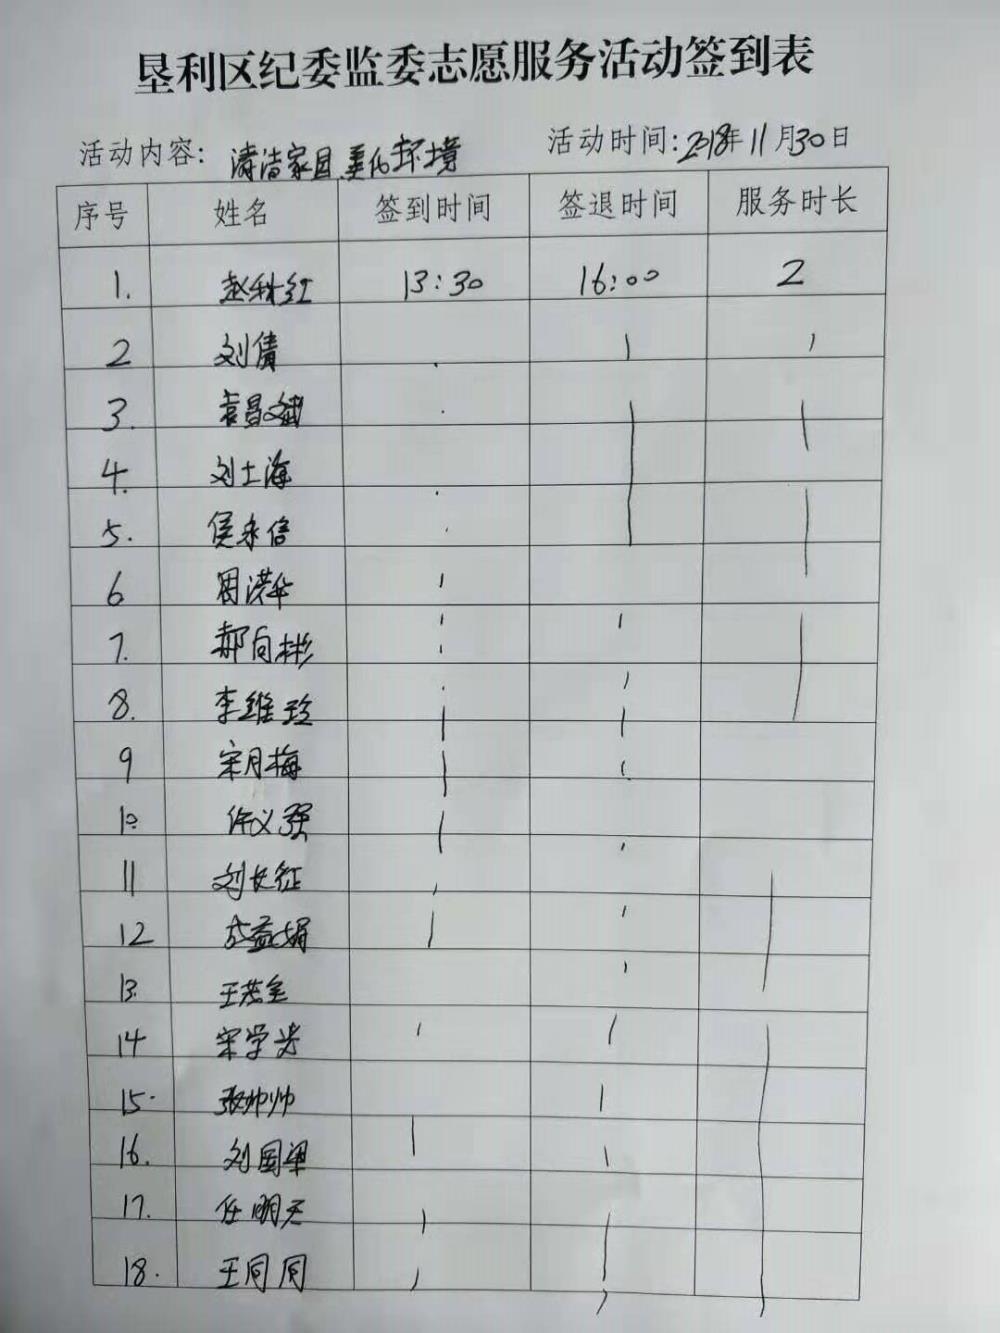 垦利区纪委监委志愿服务活动签到表
活动内容: 清洁家园 美化环境 活动时间: 2018年11月30日
序号 姓名 签到时间 签退时间 服务时长
1. 赵科红 13:30 16:00 2
2 刘倩
3. 袁昌斌
4. 刘士海
5. 侯永信
6 周洪华
7. 郝向彬
8. 李维玲
9 宋月梅
10 许义强
11 刘长征
12 成益娟
13. 王茂全
14 宋学芳
15. 张帅帅
16. 刘国梁
17. 任明天
18. 王同同